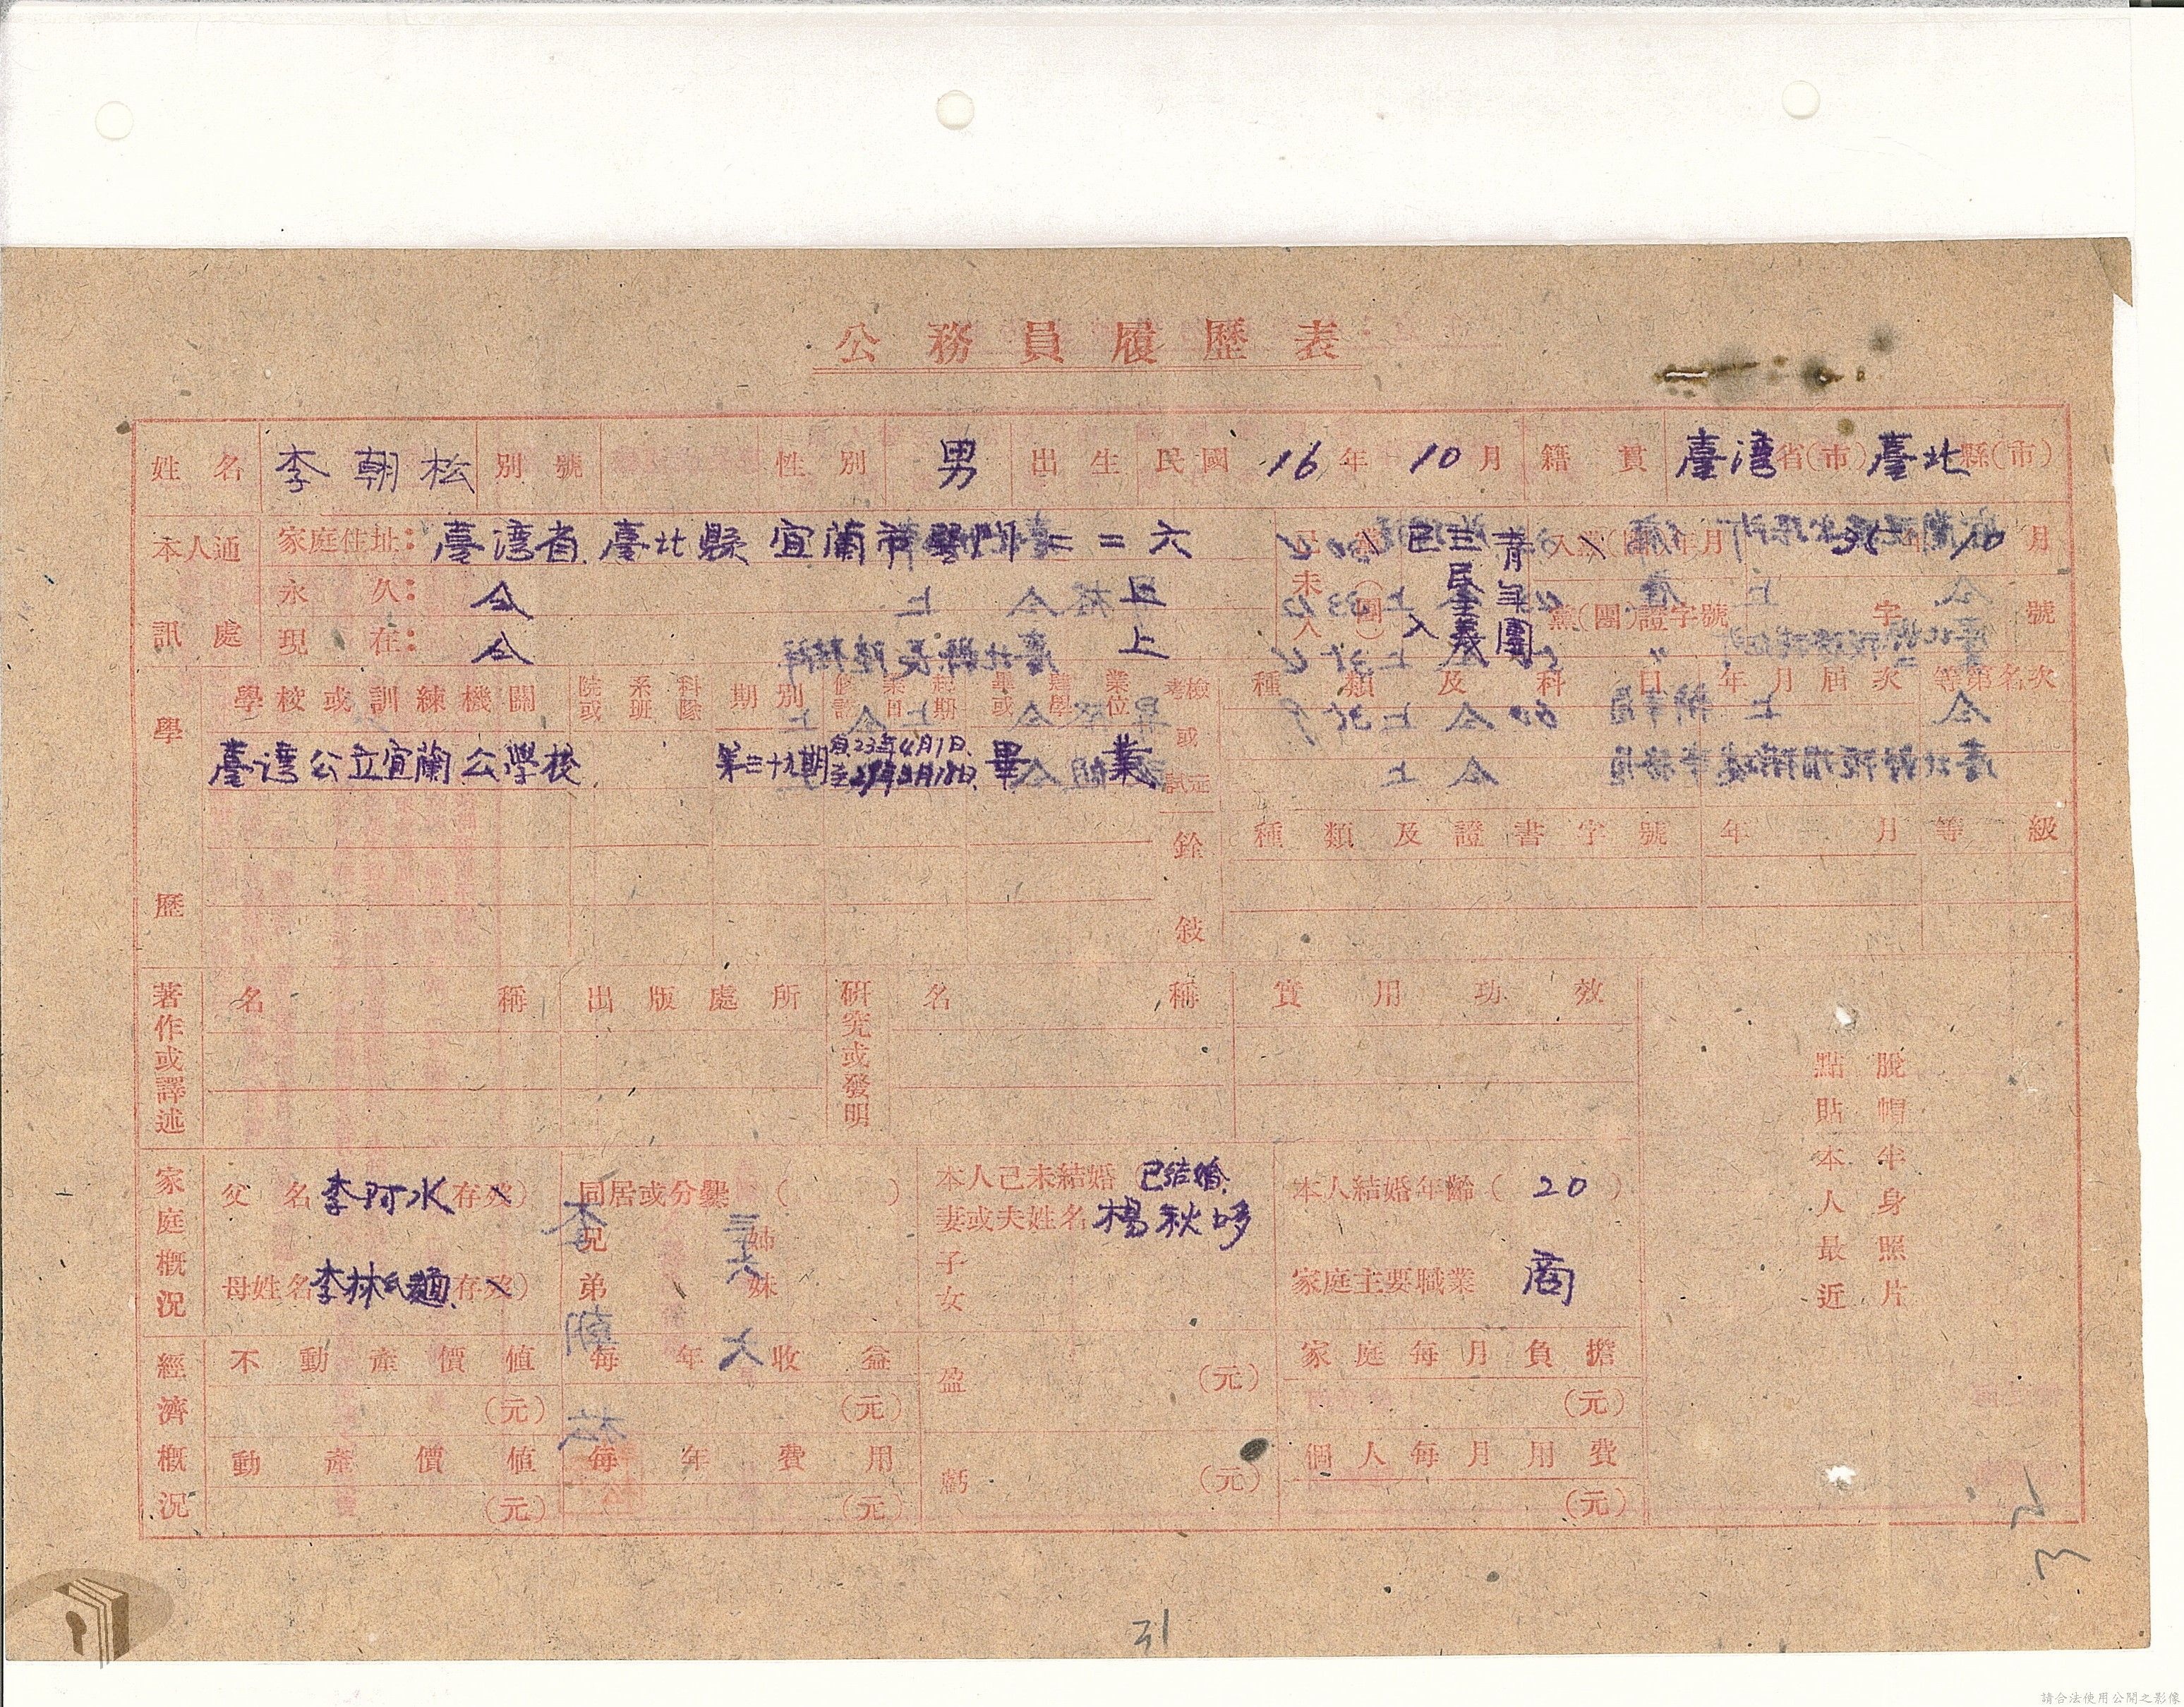 公務員履歷表
姓名 李朝松 別號 性別 男 出生 民國 16年10月 籍貫 臺灣省(市)臺北縣(市)
本人通訊處
家庭住址：臺灣省臺北縣宜蘭市 二二六
永久：仝上
現在：仝上
已未入 (團) 已 三民主義青年團 入
年月 36 10月
黨(團)證字號 字 號
學歷
學校或訓練機關 院或 系班 科隊 期別 修業起訖日期 畢或肄業學位
臺灣公立宜蘭公學校 第三十九期 自23年4月1日 至29年3月18日 畢業
考試或檢定 種類及科目 年月 屆次 等第名次
銓敍 種類及證書字號 年月 等級
著作或譯述 名稱 出版處所
研究或發明 名稱 實用功效
脫帽半身照片
點貼本人最近
家庭概況
父名 李阿水 (存歿)
母姓名 李林氏麵 (存歿)
同居或分爨 ( )
兄 姊
弟 妹
本人已未結婚 已結婚
妻或夫姓名 楊秋哆
子
女
本人結婚年齡 (20)
家庭主要職業 商
經濟概況
不動產價值 (元) 每年收益 (元) 盈 (元) 家庭每月負擔 (元)
動產價值 (元) 每年費用 (元) 虧 (元) 個人每月用費 (元)
31
請合法使用公開之影像